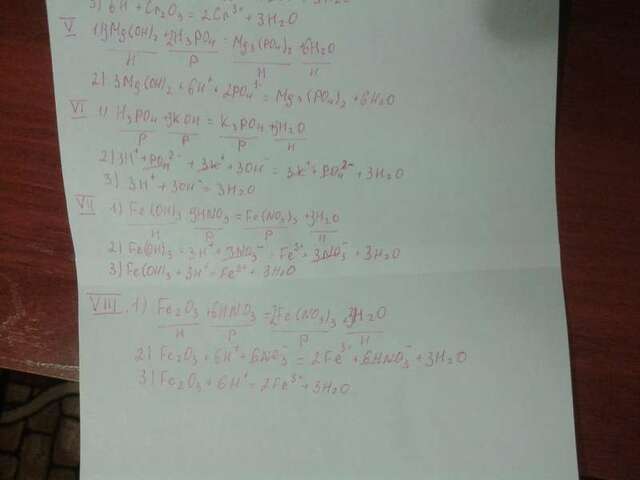 3) 6H + Cr₂O₃ = 2Cr³⁺ + 3H₂O
V 1) 3Mg(OH)₂ + 2H₃PO₄ = Mg₃(PO₄)₂ + 6H₂O
Н Р Н Н
2) 3Mg(OH)₂ + 6H⁺ + 2PO₄³⁻ = Mg₃(PO₄)₂ + 6H₂O
VI 1) H₃PO₄ + 3KOH = K₃PO₄ + 3H₂O
Р Р Р Н
2) 3H⁺ + PO₄²⁻ + 3K⁺ + 3OH⁻ = 3K⁺ + PO₄²⁻ + 3H₂O
3) 3H⁺ + 3OH⁻ = 3H₂O
VII 1) Fe(OH)₃ 3HNO₃ = Fe(NO₃)₃ + 3H₂O
Н Р Р Н
2) Fe(OH)₃ = 3H⁺ + 3NO₃⁻ = Fe³⁺ + 3NO₃⁻ + 3H₂O
3) Fe(OH)₃ + 3H⁺ = Fe³⁺ + 3H₂O
VIII. 1) Fe₂O₃ + 6HNO₃ = 2Fe(NO₃)₃ + 3H₂O
Н Р Р Н
2) Fe₂O₃ + 6H⁺ + 6NO₃⁻ = 2Fe³⁺ + 6HNO₃⁻ + 3H₂O
3) Fe₂O₃ + 6H⁺ = 2Fe³⁺ + 3H₂O